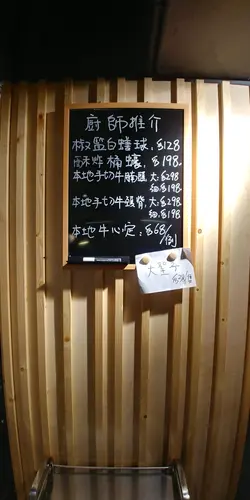 廚師推介
椒鹽白鱔球，$128
酥炸桶蠔，$198
本地手切牛 大：$298
細：$198
本地手切牛頸脊，大：$298
細：$198
本地牛心定：$68/例
大 子